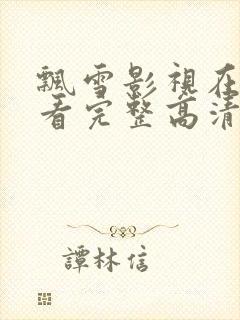 飄雪影視在
看完整高清
譚林信